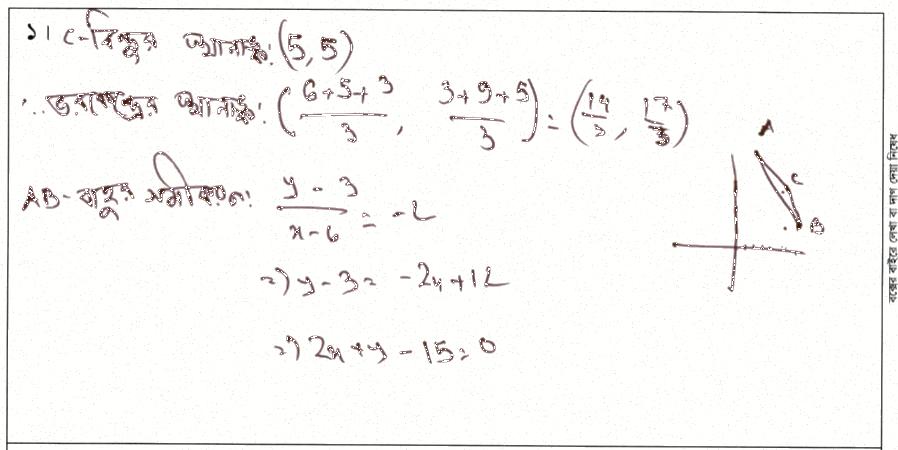 ১। C-বিন্দুর স্থানাঙ্ক: (5, 5)
∴ ভরকেন্দ্রের স্থানাঙ্ক: ( (6+5+3)/3 , (3+9+5)/3 ) = (14/3, 17/3)
AB-বাহুর সমীকরণ: (y-3)/(x-6) = -2
=> y-3 = -2x+12
=> 2x+y-15=0
A
C
B
বক্সের বাইরে লেখা বা দাগ দেয়া নিষেধ